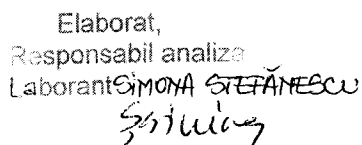 Elaborat,
Responsabil analize
Laborant SIMONA STEFĂNESCU